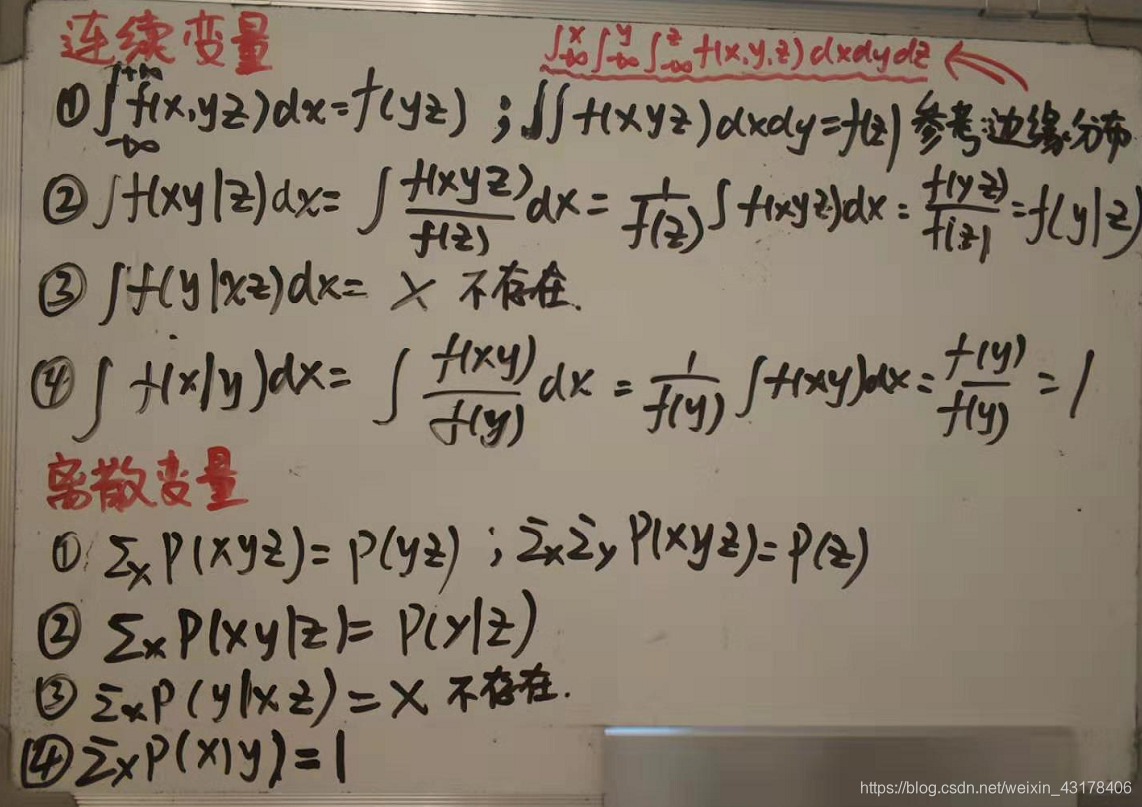 连续变量
∫_{-∞}^{x}∫_{-∞}^{y}∫_{-∞}^{z} f(x,y,z)dxdydz
① ∫_{-∞}^{+∞} f(x,yz)dx=f(yz) ; ∬f(xyz)dxdy=f(z) 参考边缘分布
② ∫f(xy|z)dx= ∫ f(xyz)/f(z) dx = 1/f(z) ∫f(xyz)dx = f(yz)/f(z) = f(y|z)
③ ∫f(y|xz)dx= × 不存在.
④ ∫ f(x|y)dx= ∫ f(xy)/f(y) dx = 1/f(y) ∫f(xy)dx = f(y)/f(y) = 1
离散变量
① Σₓ P(xyz)= P(yz) ; ΣₓΣᵧ P(xyz)=P(z)
② Σₓ P(xy|z)= P(y|z)
③ Σₓ P(y|xz)= × 不存在.
④ Σₓ P(x|y)=1
https://blog.csdn.net/weixin_43178406